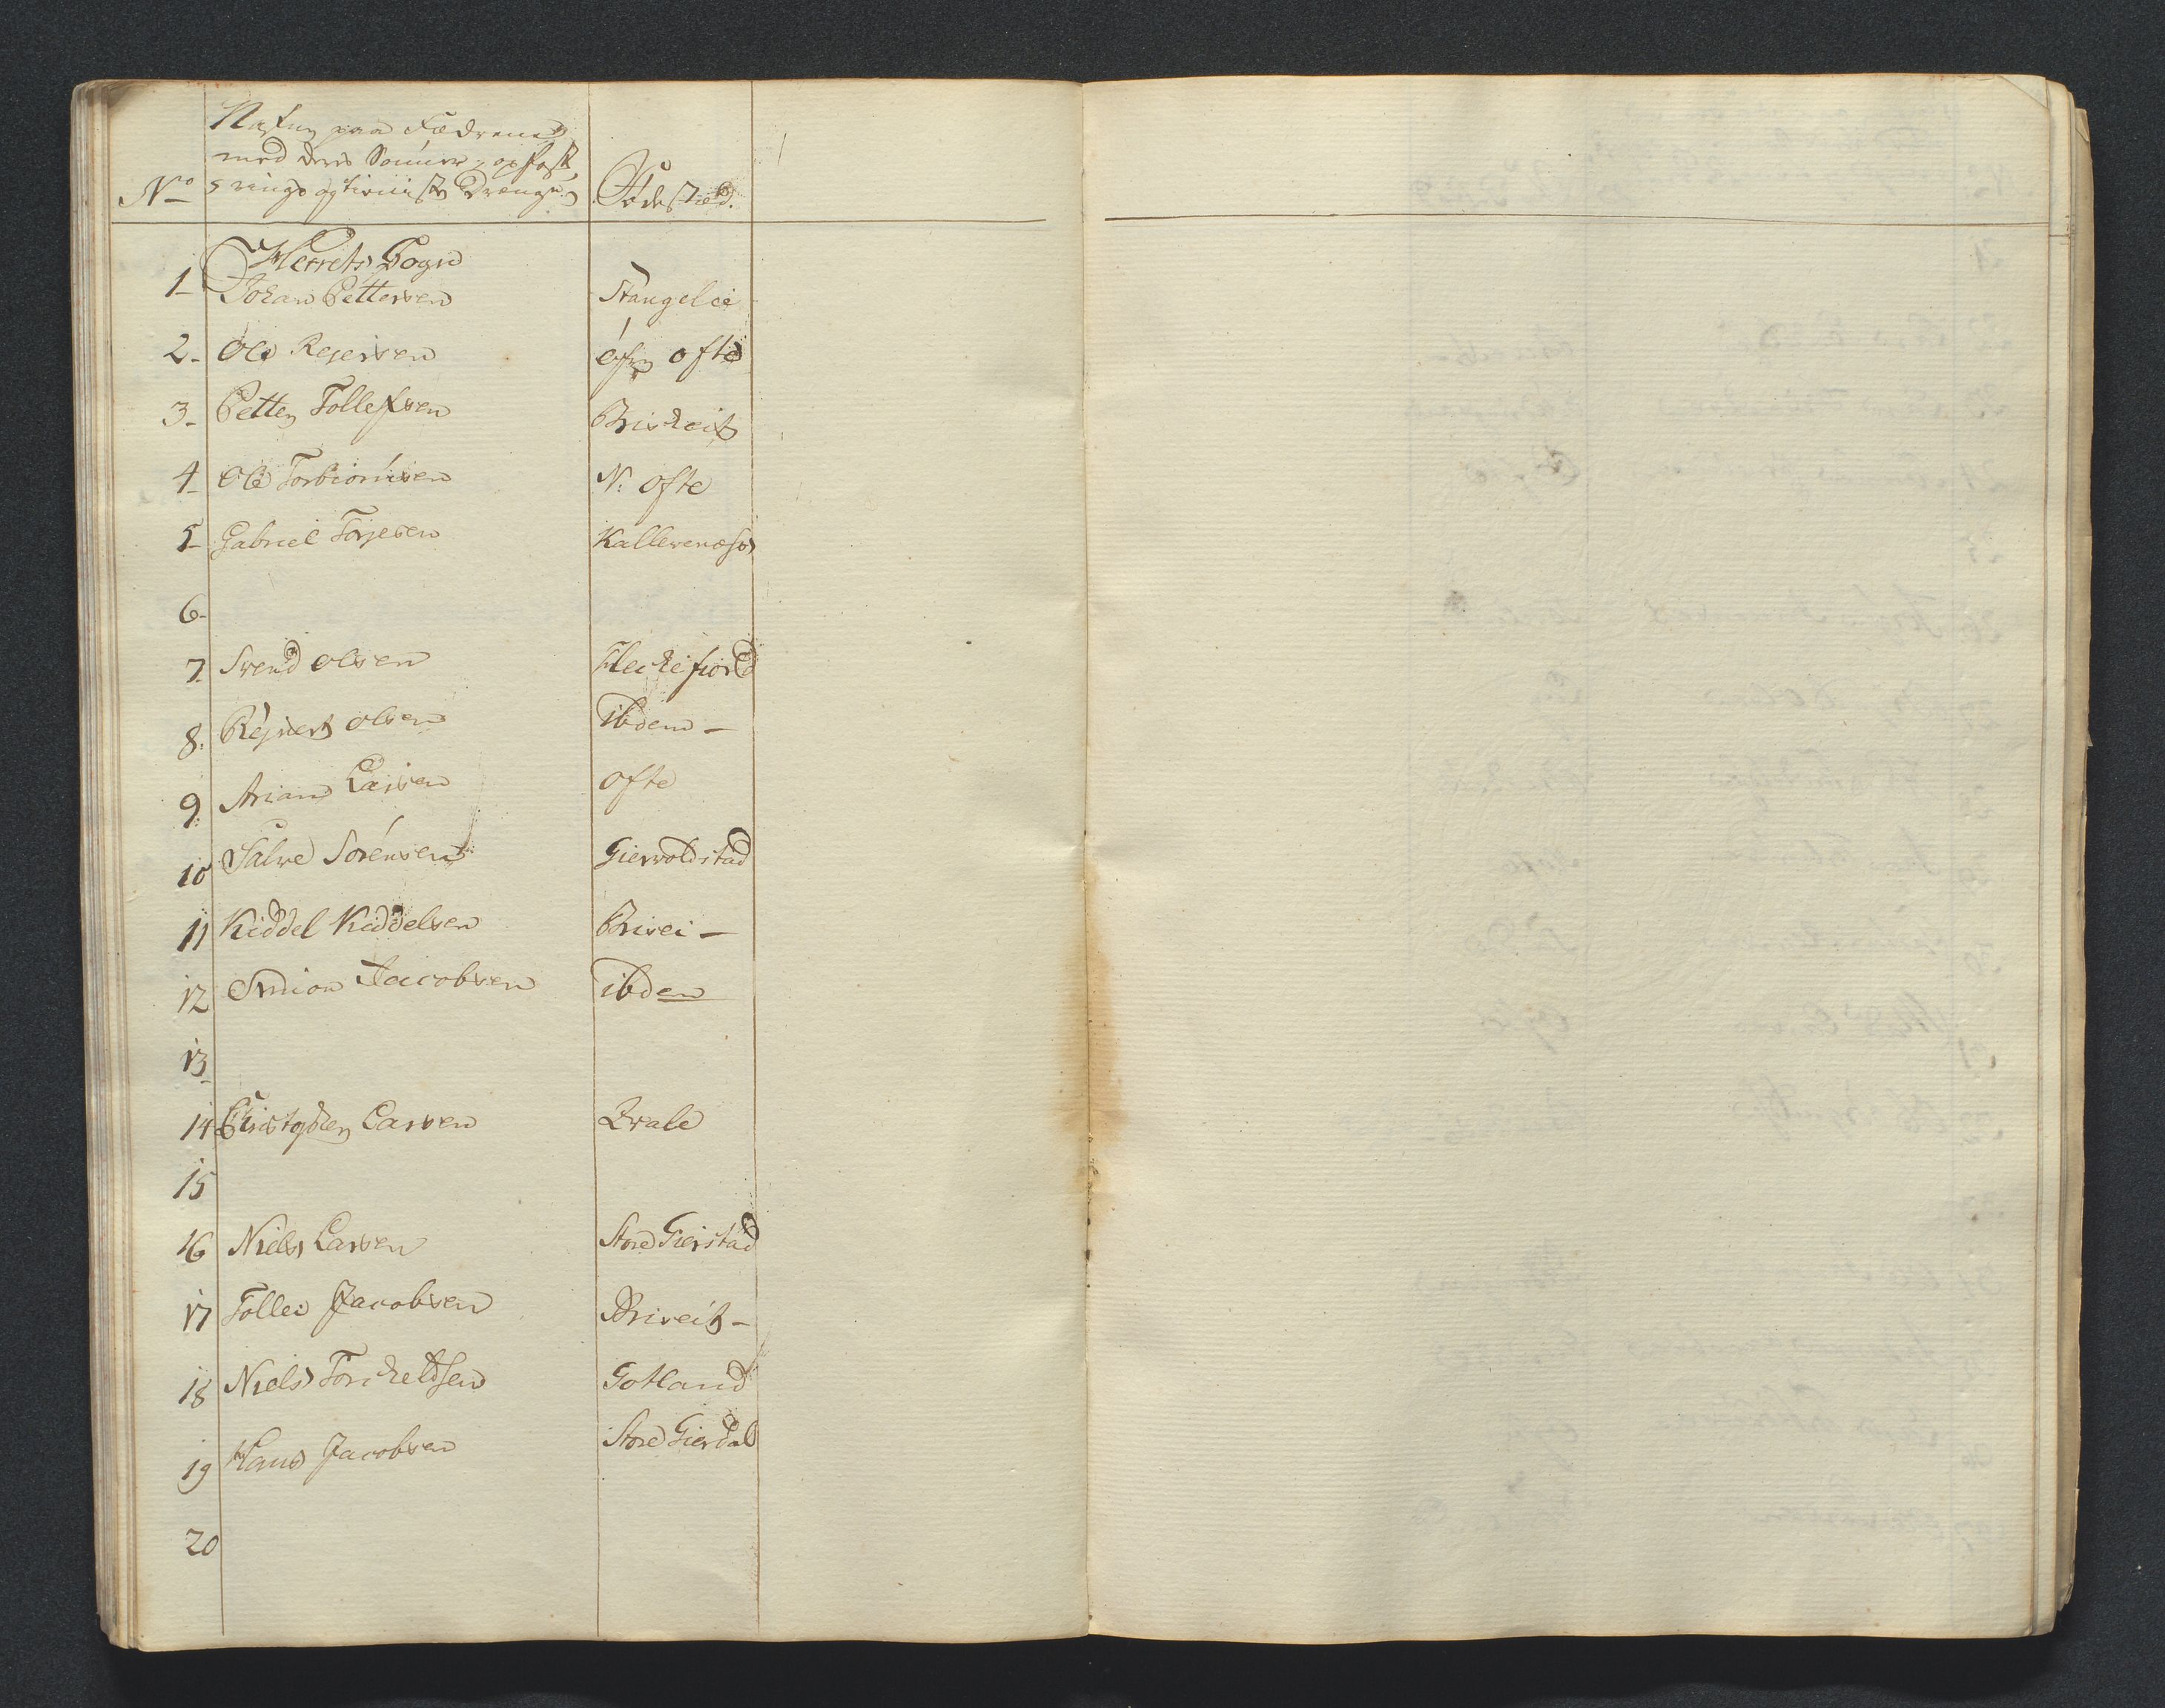 Nafn paa Fædrene
med deres Sönner, opfost
N:o rings og tienniste Drenge
Födested.
Herrets Sogn
1 Johan Pettersen Stangelei
2 Ole Rejersen öfr ofte
3 Petter Tollefsen Briseit
4 Ole Torbiornsen N: ofte
5 Gabriel Torjesen Kallevenæss
6
7 Svend olsen Fleckefiord
8 Rejnert olsen ibdem
9 Arian Larsen ofte
10 Salve Sörensen Giervoldstad
11 Kiddel Kiddelsen Brisei
12 Simion Jacobsen ibdem
13
14 Christopher Larsen Qvale
15
16 Niels Larsen Store Gierstad
17 Tollei Jacobsen Briseit
18 Niels Torkeldsen Gotland
19 Hans Jacobsen Store Gierdal
20